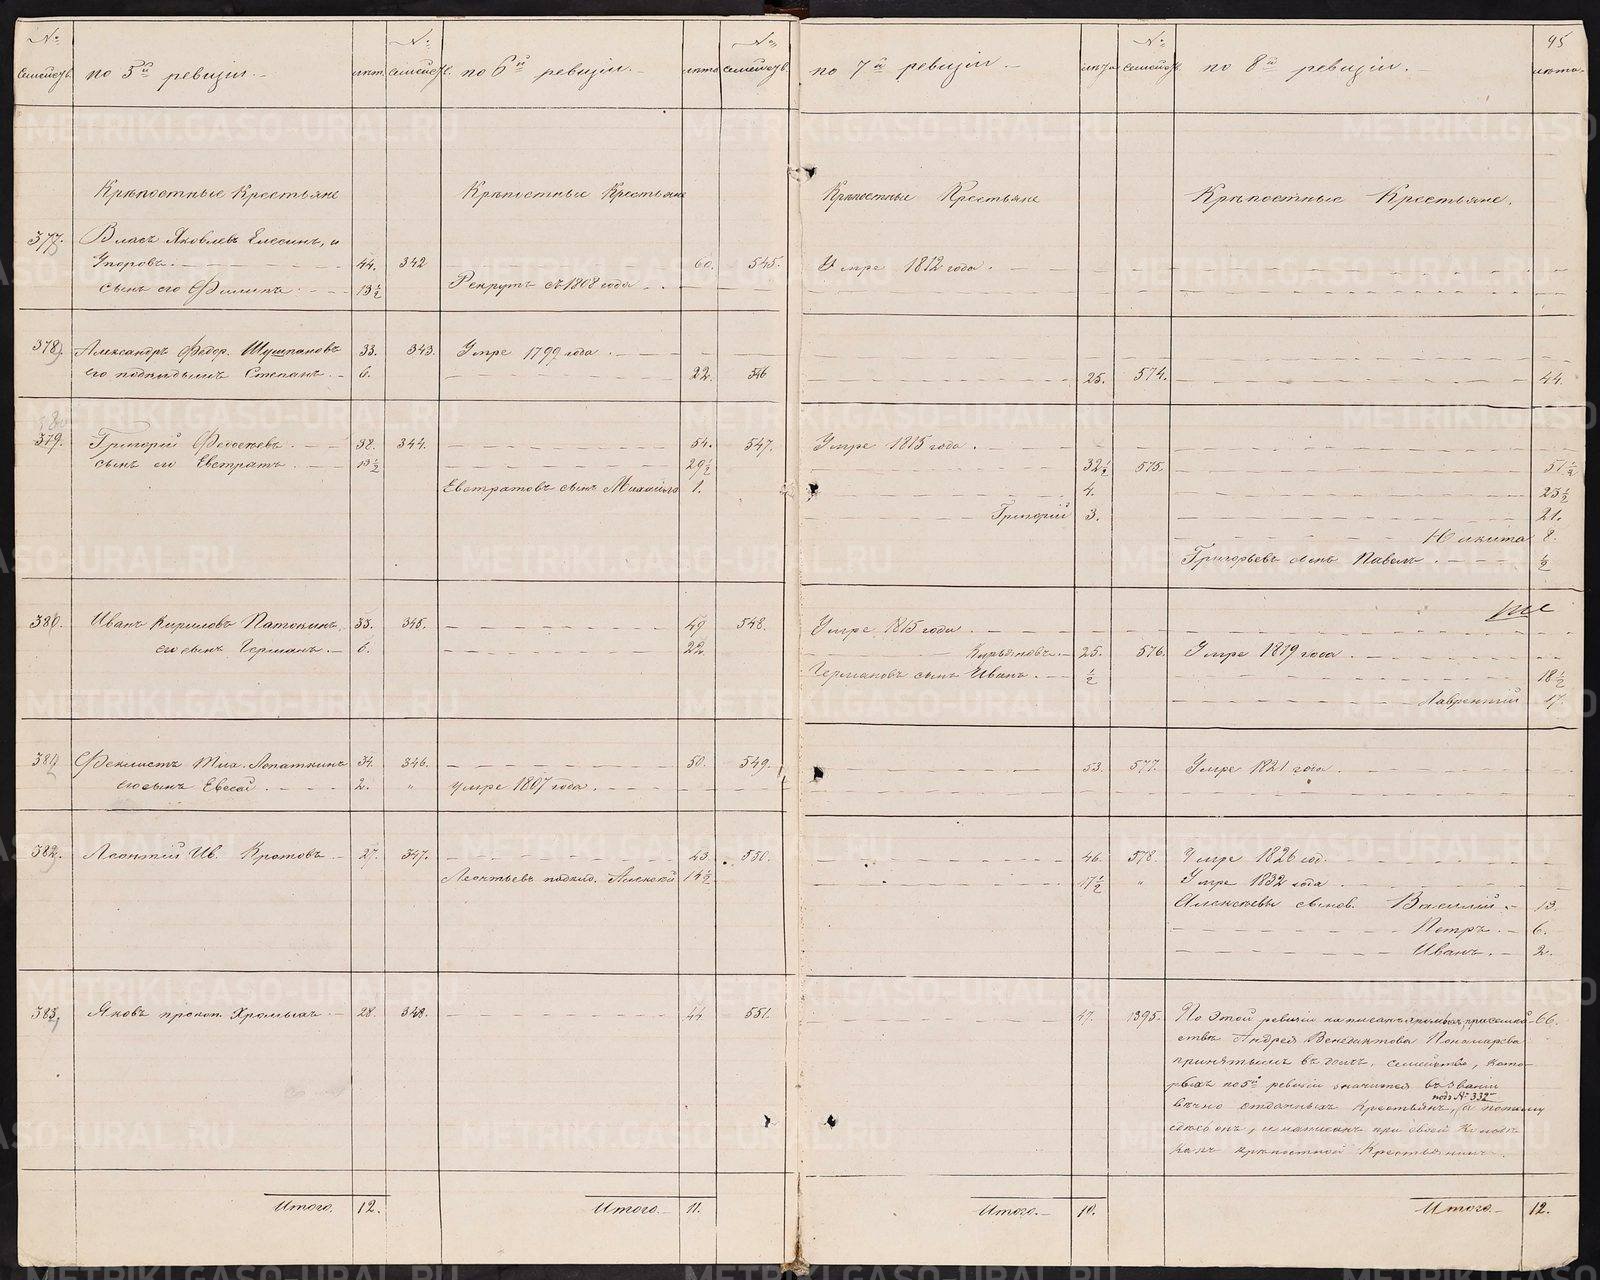 95
№ семейств. по 5й ревизіи.- лѣта. № семейств. по 6й ревизіи.- лѣта № семейств. по 7й ревизіи.- лѣта № семейств. по 8й ревизіи.- лѣта.
Крѣпостные Крестьяне Крѣпостные Крестьяне Крѣпостные Крестьяне Крѣпостные Крестьяне.
377. Власъ Яковлевъ Елесинъ, и
Упоровъ. 44. 342 60. 545. Умре 1812 года.
сынъ его Филипъ 13½ Рекрутъ съ 1808 года
378. Александръ Федор. Шушпановъ 33. 343. Умре 1799 года.
его подкидышъ Степанъ. 6. 22. 546 25. 574. 44.
379. Григорій Федосѣевъ 38. 344. 54. 547. Умре 1815 года.
сынъ его Евстратъ. 13½ 29½ 32½ 575. 51½
Евстратовъ сынъ Михайло 1. 4. 23½
Григорій 3. 21.
Никита 8.
Григорьевъ сынъ Павелъ ½
380. Иванъ Кириловъ Патокинъ 33. 345. 49 548. Умре 1815 года
его сынъ Германъ. 6. 22. Кирьяновъ. 25. 576. Умре 1819 года
Германовъ сынъ Иванъ. ½ 18½
Лаврентій 17.
381. Феклистъ Мих. Лопаткинъ 34. 346. 50. 549. 53. 577. Умре 1821 года
его сынъ Евсей 2. " умре 1807 года.
382. Леонтій Ив. Кротовъ 27. 347. 43. 550. 46. 578. Умре 1826 год.
Леонтьевъ подкид. Алексѣй 14½ 17½ " Умре 1832 года
Алексѣевы сынов. Василій. 13.
Петръ. 6.
Иванъ. 2.
383. Яковъ прокоп. Хромыхъ 28. 348. 44 551. 47. 1395. По этой ревизіи написанъ при семей- 66.
ствѣ Андрея Венедиктова Пономарева
принятымъ въ домъ, семейство, кото-
рыхъ по 5й ревизіи значится въ званіи
подъ № 332
вѣчно отданныхъ Крестьянъ, а потому
и написанъ при своей
какъ крѣпостной Крестьянинъ.
Итого. 12. Итого. 11. Итого. 10. Итого. 12.
METRIKI.GASO-URAL.RU